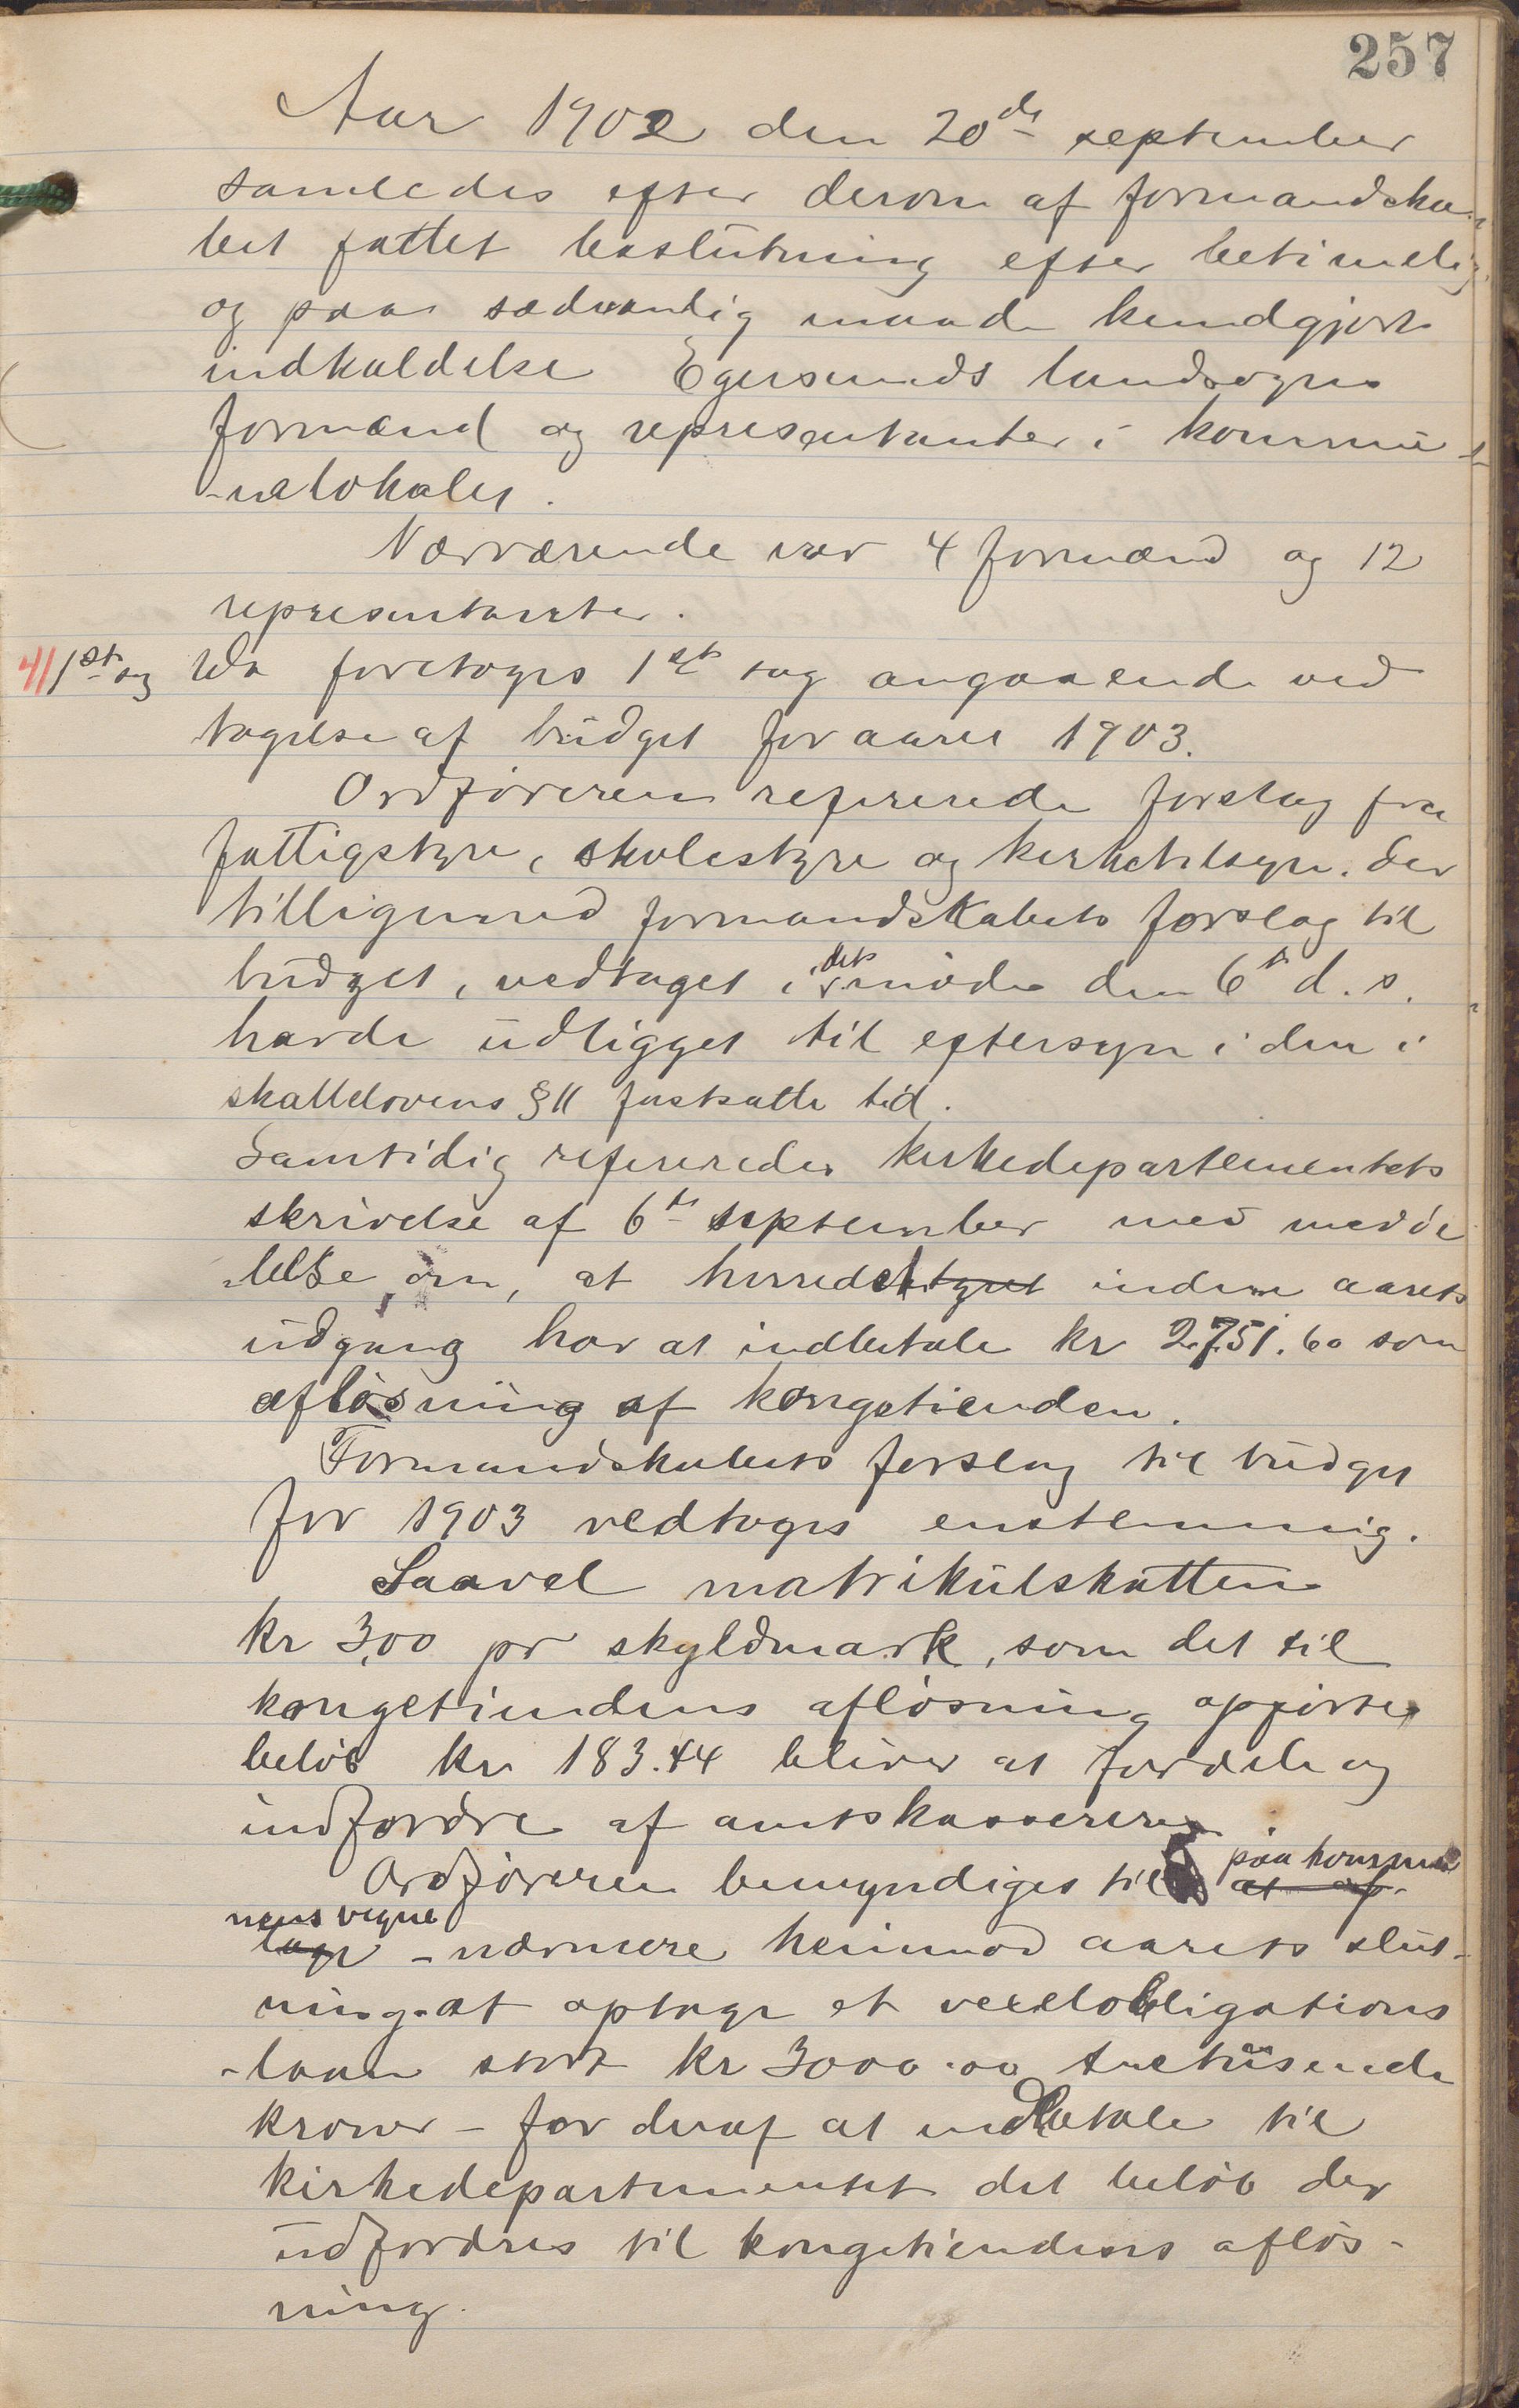 257
Aar 1902 den 20de september
samledes efter derom af formandska-
bet fattet beslutning efter betimelig
og paa sædvanlig maade kundgjort
indkaldelse Egersunds landsogns
formænd og representanter i kommu-
-nelokalet.
Nærværende var 4 formænd og 12
representanter.
4/ 1st sag
Da foretoges 1st sag angaaende ved
tagelse af budget for aaret 1903.
Ordføreren refererede forslag fra
fattigstyre, skolestyre og kirketilsyn. der
tilligemed formandskabets forslag til
budget, vedtaget i dets møde den 6te d. s.
havde udligget til eftersyn i den i
skattelovens § 11 fastsatte tid.
Samtidig refereredes kirkedepartementets
skrivelse af 6te september med medde
-lelse om, at herredet inden aarets
udgang har at indbetale kr 2751.60 som
afløsning af kongetienden.
Formandskabets forslag til budget
for 1903 vedtoges enstemmig.
Saavel matrikulskatten
kr 3,00 pr skyldmark, som det til
kongetiendens afløsning opførte
beløb kr 183.44 bliver at fordele og
indfordre af amtskassereren.
Ordføreren bemyndiges til paa kommu
at op-
nens vegne
tage - nærmere henimod aarets slut-
ning at optage et vexelobligations
-laan stort kr 3000.00 tretusende
kroner - for deraf at indbetale til
kirkedepartementet det beløb der
udfordres til kongetiendens afløs-
ning.